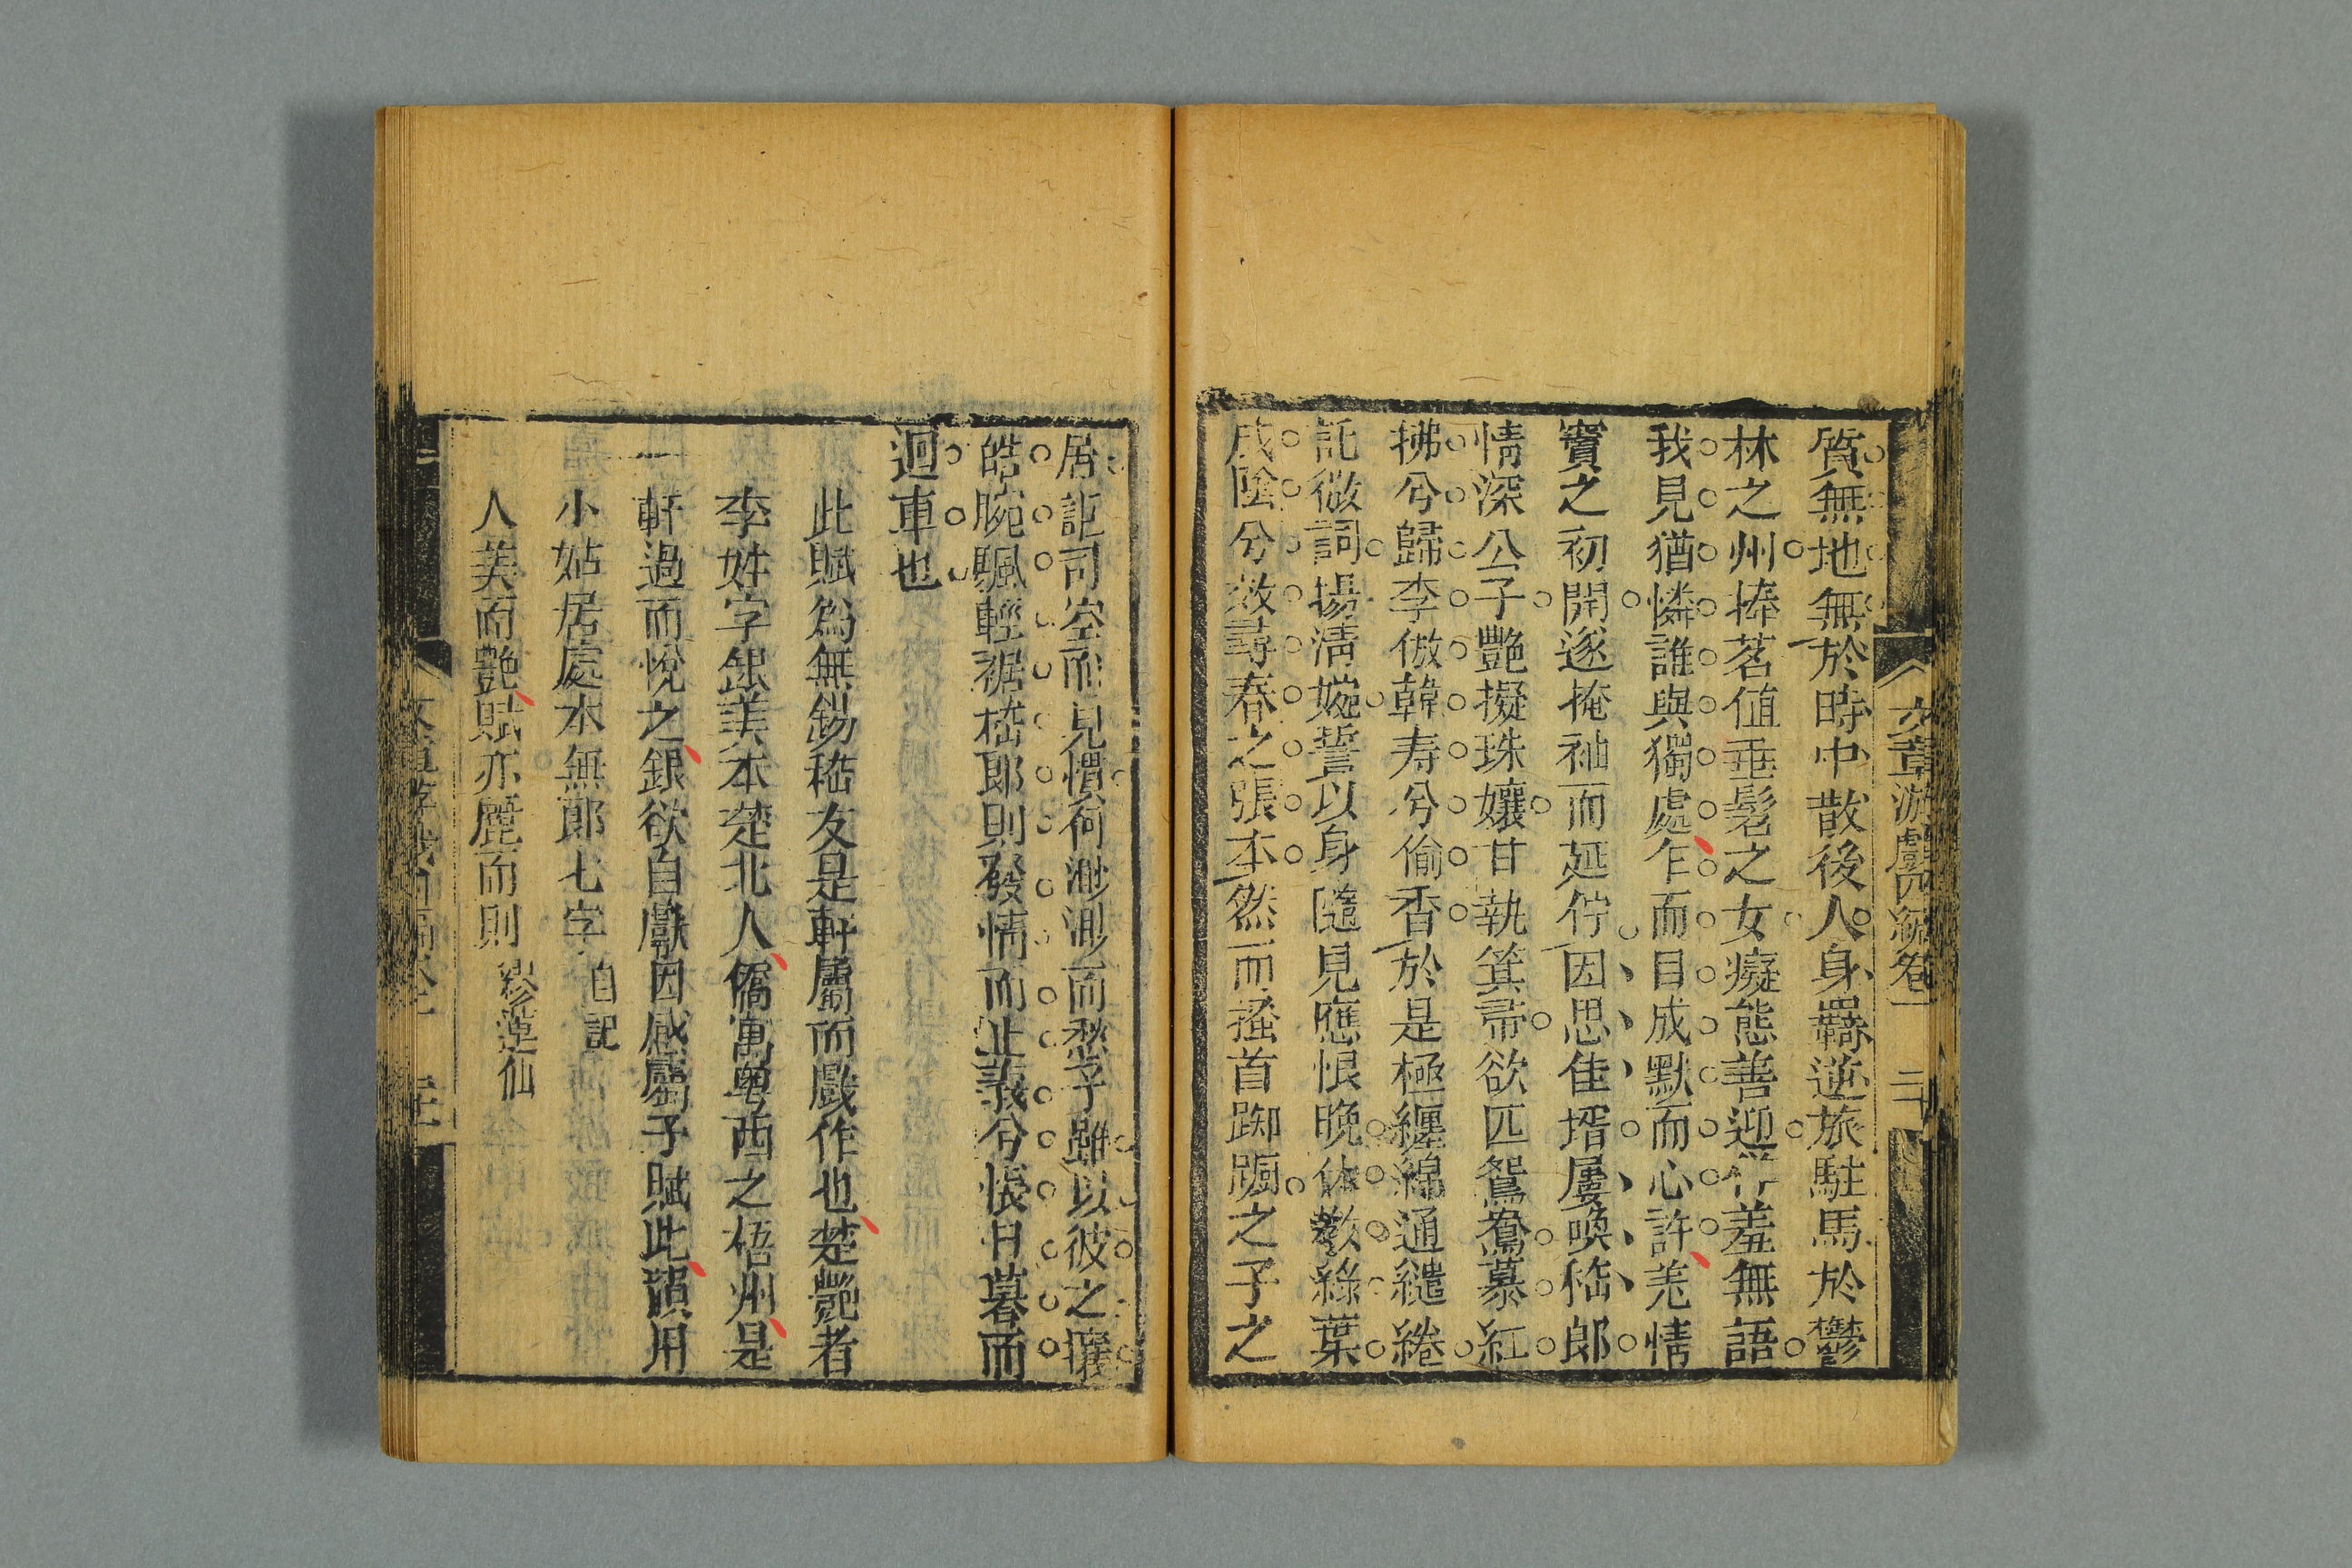 文章游戲四編卷一
二十
質無地無於時中散後人身羈逆旅駐馬於鬱
林之州捧茗値垂髫之女癡態善迎佯羞無語
我見猶憐誰與獨處乍而目成默而心許羌情
竇之初開遂掩袖而延佇因思佳壻屢喚嵇郎
情深公子艷擬珠孃甘執箕帚欲匹鴛鴦慕紅
拂兮歸李倣韓寿兮偷香於是極纏綿通繾綣
託微詞揚清婉誓以身隨見應恨晚休歎綠葉
成陰兮效尋春之張本然而搔首踟躕之子之
居詎司空而見慣荷渺渺而愁予雖以彼之穠
皓腕颿輕裾嵇郎則發情而止義兮悵日暮而
迴車也
此賦為無錫嵇友是軒屬而戲作也楚艷者
李姓字銀美本楚北人僑寓粤西之梧州是
軒過而悅之銀欲自獻因感屬予賦此韻用
小姑居處本無郎七字 自記
人美而艷賦亦麗而則 繆蓮仙